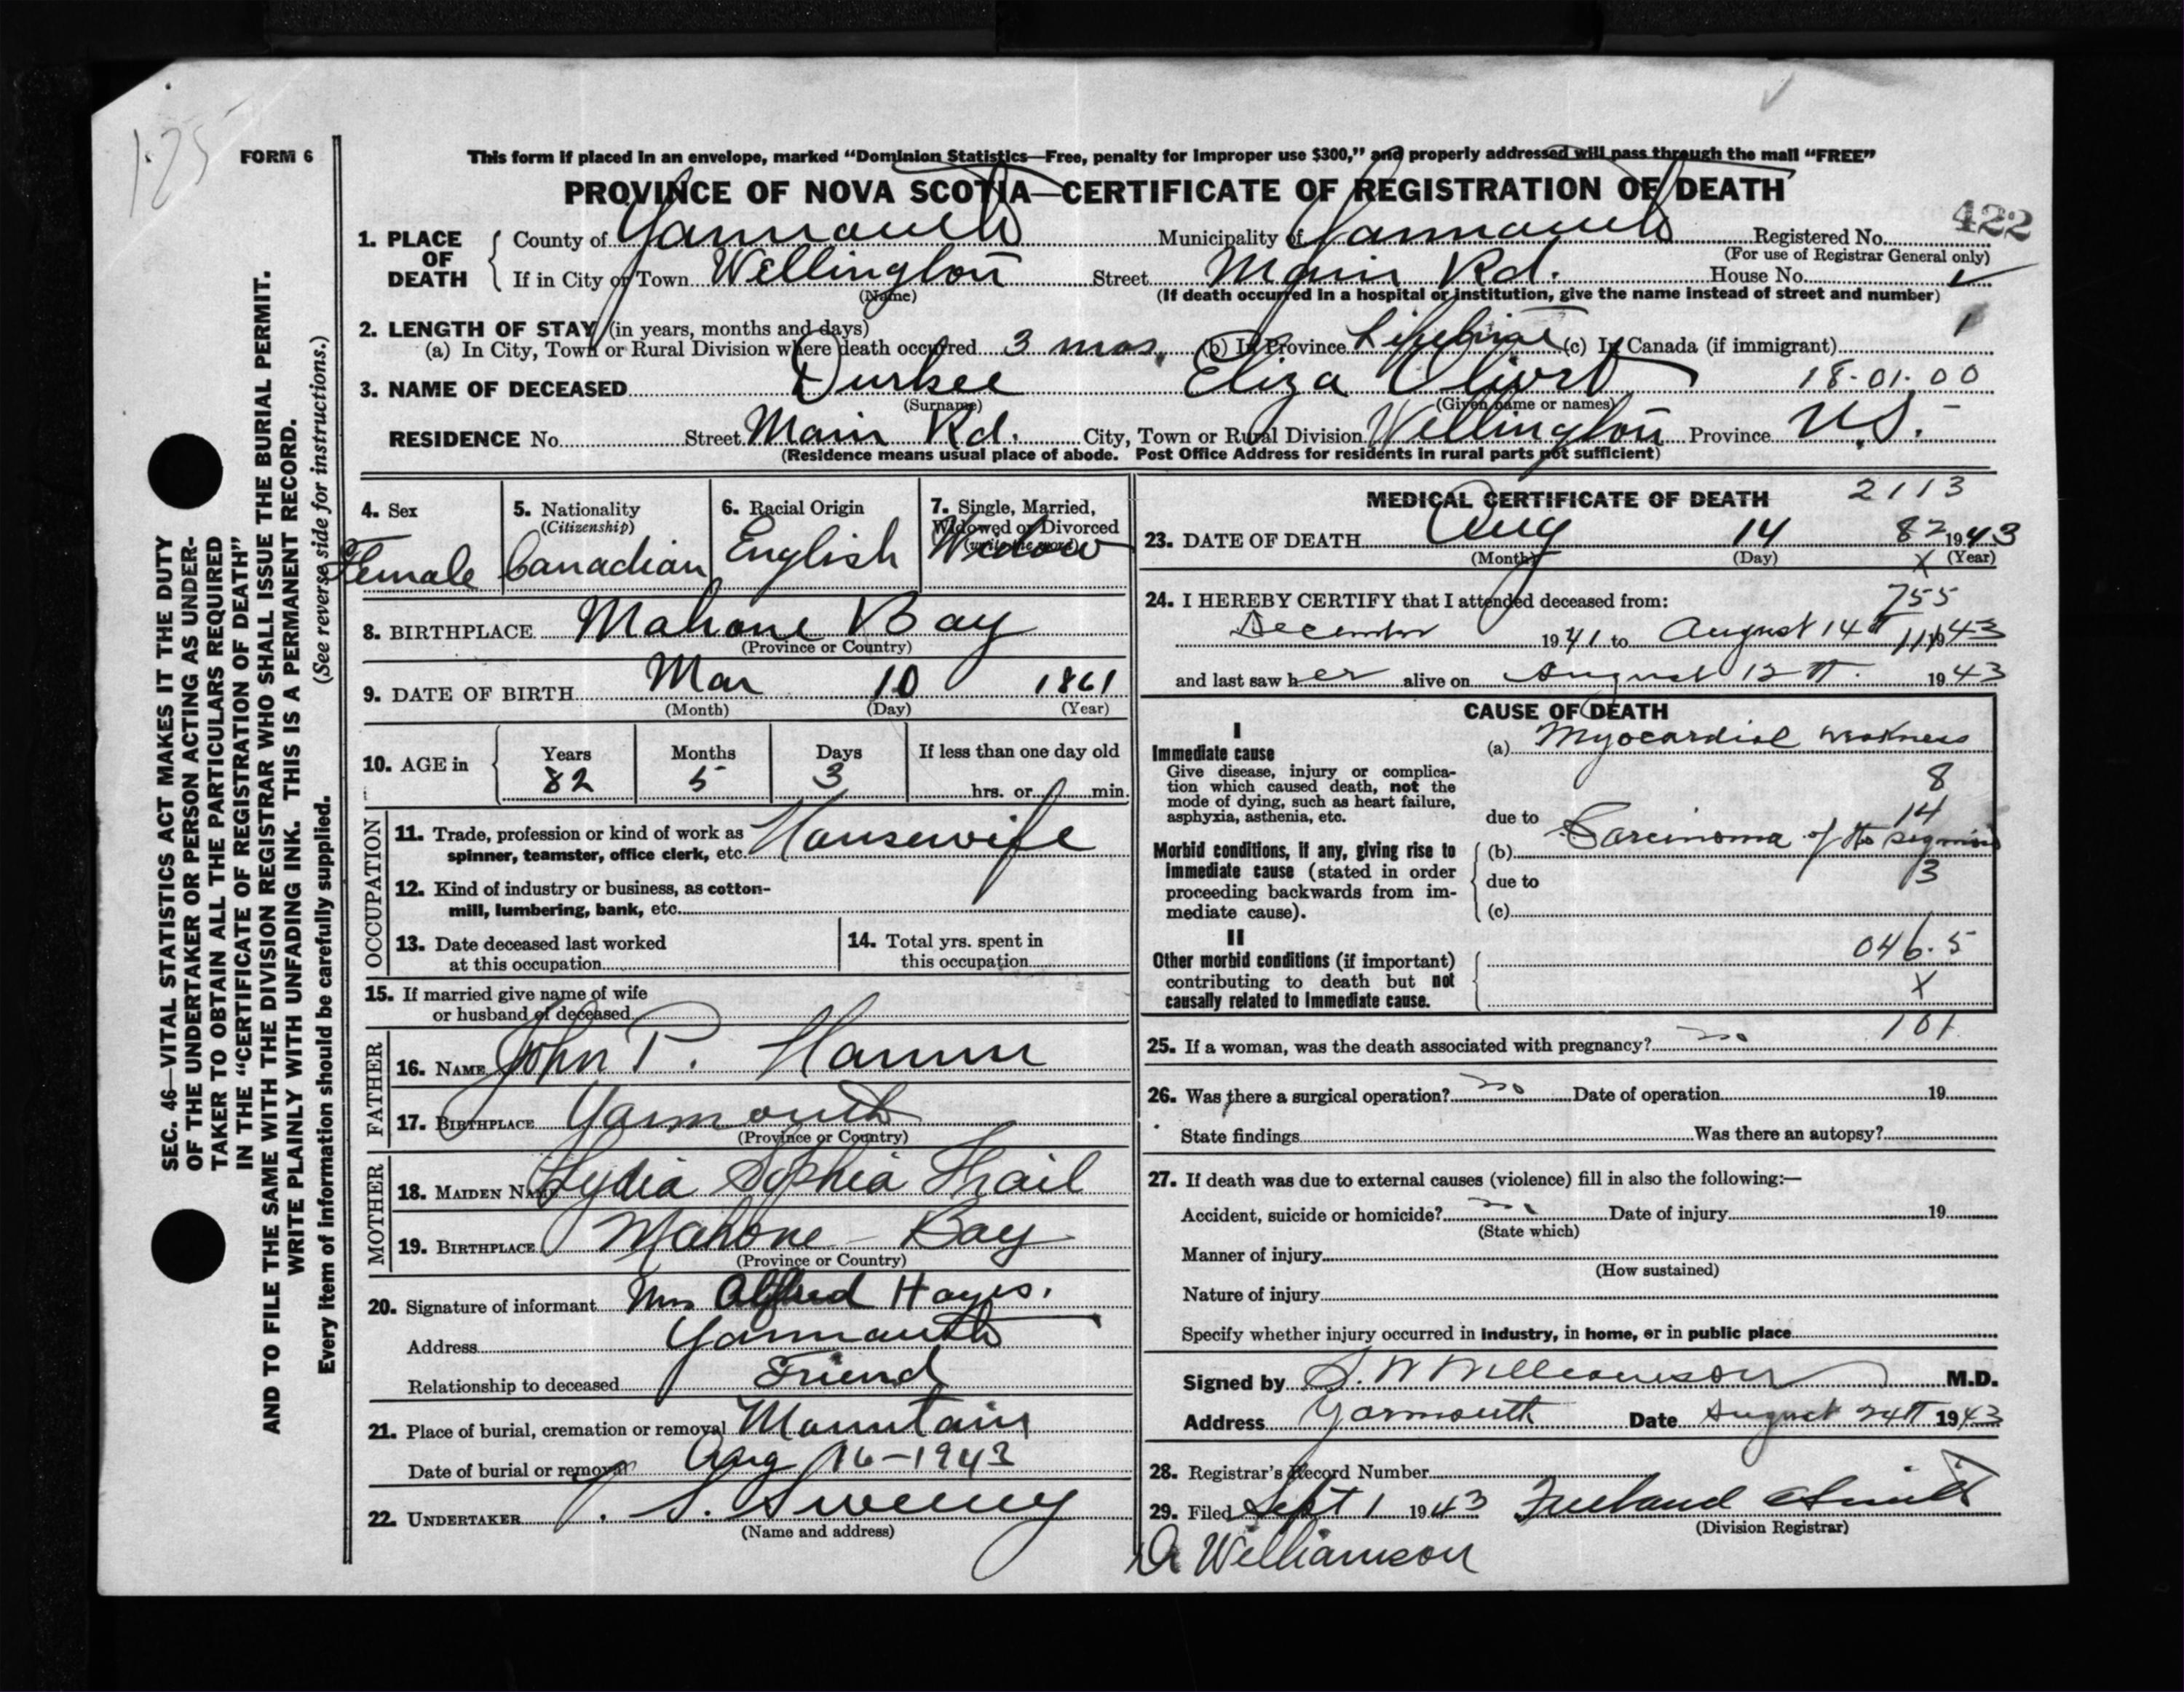 1.25
FORM 6
This form if placed in an envelope, marked “Dominion Statistics—Free, penalty for improper use $300,” and properly addressed will pass through the mail “FREE”
PROVINCE OF NOVA SCOTIA—CERTIFICATE OF REGISTRATION OF DEATH
422
1. PLACE OF DEATH
County of Yarmouth Municipality of Yarmouth Registered No.
(For use of Registrar General only)
If in City or Town Wellington Street Main Rd. House No.
(Name) (If death occurred in a hospital or institution, give the name instead of street and number)
2. LENGTH OF STAY (in years, months and days)
(a) In City, Town or Rural Division where death occurred 3 mos. (b) In Province Lifetime (c) In Canada (if immigrant)
3. NAME OF DECEASED Durkee Eliza 18-01-00
(Surname) (Given name or names)
RESIDENCE No. Street Main Rd. City, Town or Rural Division Wellington Province N.S.
(Residence means usual place of abode. Post Office Address for residents in rural parts not sufficient)
4. Sex
Female
5. Nationality
(Citizenship)
Canadian
6. Racial Origin
English
7. Single, Married,
Widowed or Divorced
(write the word)
Widow
8. BIRTHPLACE Mahone Bay
(Province or Country)
9. DATE OF BIRTH Mar 10 1861
(Month) (Day) (Year)
10. AGE in
Years Months Days If less than one day old
82 5 3 hrs. or min.
OCCUPATION
11. Trade, profession or kind of work as
spinner, teamster, office clerk, etc. Housewife
12. Kind of industry or business, as cotton-
mill, lumbering, bank, etc.
13. Date deceased last worked
at this occupation
14. Total yrs. spent in
this occupation
15. If married give name of wife
or husband of deceased
FATHER
16. NAME John P. Hamm
17. BIRTHPLACE Yarmouth
(Province or Country)
MOTHER
18. MAIDEN NAME Lydia Sophia
19. BIRTHPLACE Mahone - Bay
(Province or Country)
20. Signature of informant Mrs Alfred Hayes.
Address Yarmouth
Relationship to deceased Friend
21. Place of burial, cremation or removal Mountain
Date of burial or removal Aug 16-1943
22. UNDERTAKER S. Sweeny
(Name and address)
MEDICAL CERTIFICATE OF DEATH 2113
23. DATE OF DEATH Aug 14 82 1943
(Month) (Day) X (Year)
24. I HEREBY CERTIFY that I attended deceased from: 755
December 1941 to August 14th 1943
and last saw her alive on August 12th. 1943
CAUSE OF DEATH
I
Immediate cause
Give disease, injury or complica-
tion which caused death, not the
mode of dying, such as heart failure,
asphyxia, asthenia, etc.
(a) Myocardial weakness
8
14
due to
Morbid conditions, if any, giving rise to
immediate cause (stated in order
proceeding backwards from im-
mediate cause).
(b) Carcinoma of the
due to 3
(c)
II
Other morbid conditions (if important)
contributing to death but not
causally related to immediate cause.
046.5
X
101
25. If a woman, was the death associated with pregnancy? no
26. Was there a surgical operation? no Date of operation 19
State findings Was there an autopsy?
27. If death was due to external causes (violence) fill in also the following:—
Accident, suicide or homicide? no Date of injury 19
(State which)
Manner of injury
(How sustained)
Nature of injury
Specify whether injury occurred in industry, in home, or in public place
Signed by S. W Williamson M.D.
Address Yarmouth Date August 24th 1943
28. Registrar's Record Number
29. Filed Sept 1 1943 Freeland Smith
(Division Registrar)
Dr Williamson
SEC. 46—VITAL STATISTICS ACT MAKES IT THE DUTY
OF THE UNDERTAKER OR PERSON ACTING AS UNDER-
TAKER TO OBTAIN ALL THE PARTICULARS REQUIRED
IN THE “CERTIFICATE OF REGISTRATION OF DEATH”
AND TO FILE THE SAME WITH THE DIVISION REGISTRAR WHO SHALL ISSUE THE BURIAL PERMIT.
WRITE PLAINLY WITH UNFADING INK. THIS IS A PERMANENT RECORD.
Every item of information should be carefully supplied. (See reverse side for instructions.)